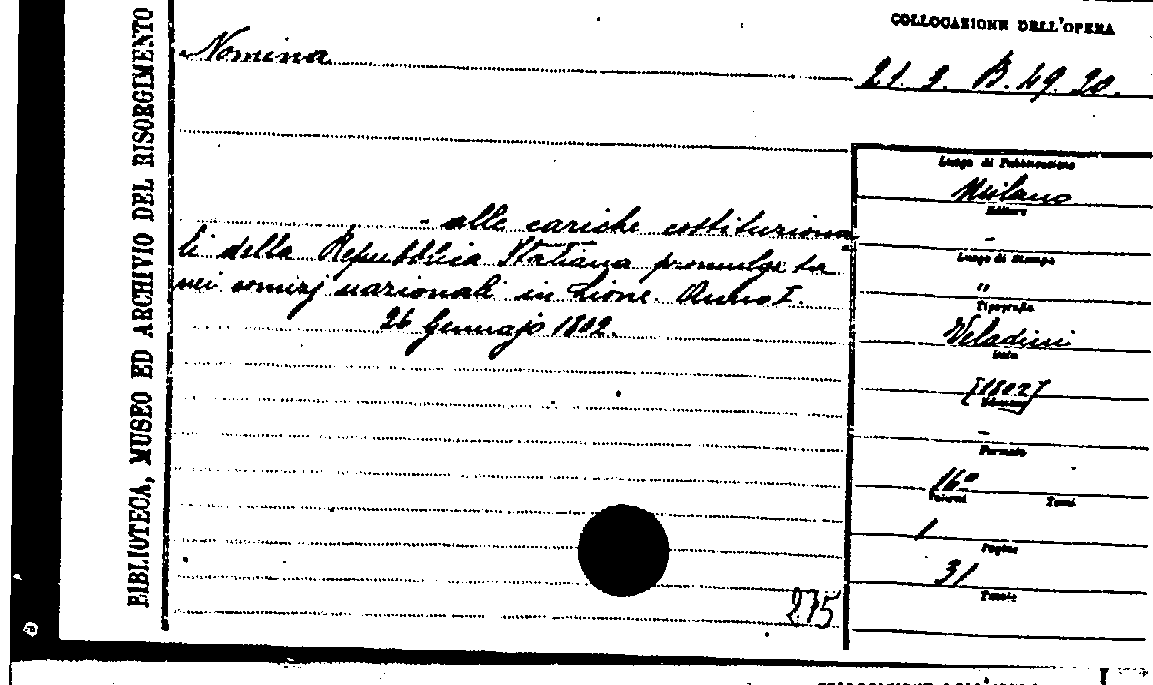 BIBLIOTECA, MUSEO ED ARCHIVIO DEL RISORGIMENTO
COLLOCAZIONE DELL'OPERA
21. 2. B. 49. 20.
Nomina
- alle cariche costituziona
li della Repubblica Italiana promulgata
nei comizj nazionali in Lione. Anno I.
26 Gennajo 1802.
275
Luogo di Pubblicazione
Milano
Editore
-
Luogo di Stampa
"
Tipografia
Veladini
Data
[1802]
Volume
-
Formato
16°
Volumi Tomi
1
Pagine
31
Tavole